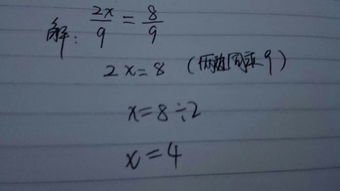 解: 2x/9 = 8/9
2x=8 (两边同乘9)
x=8÷2
x=4